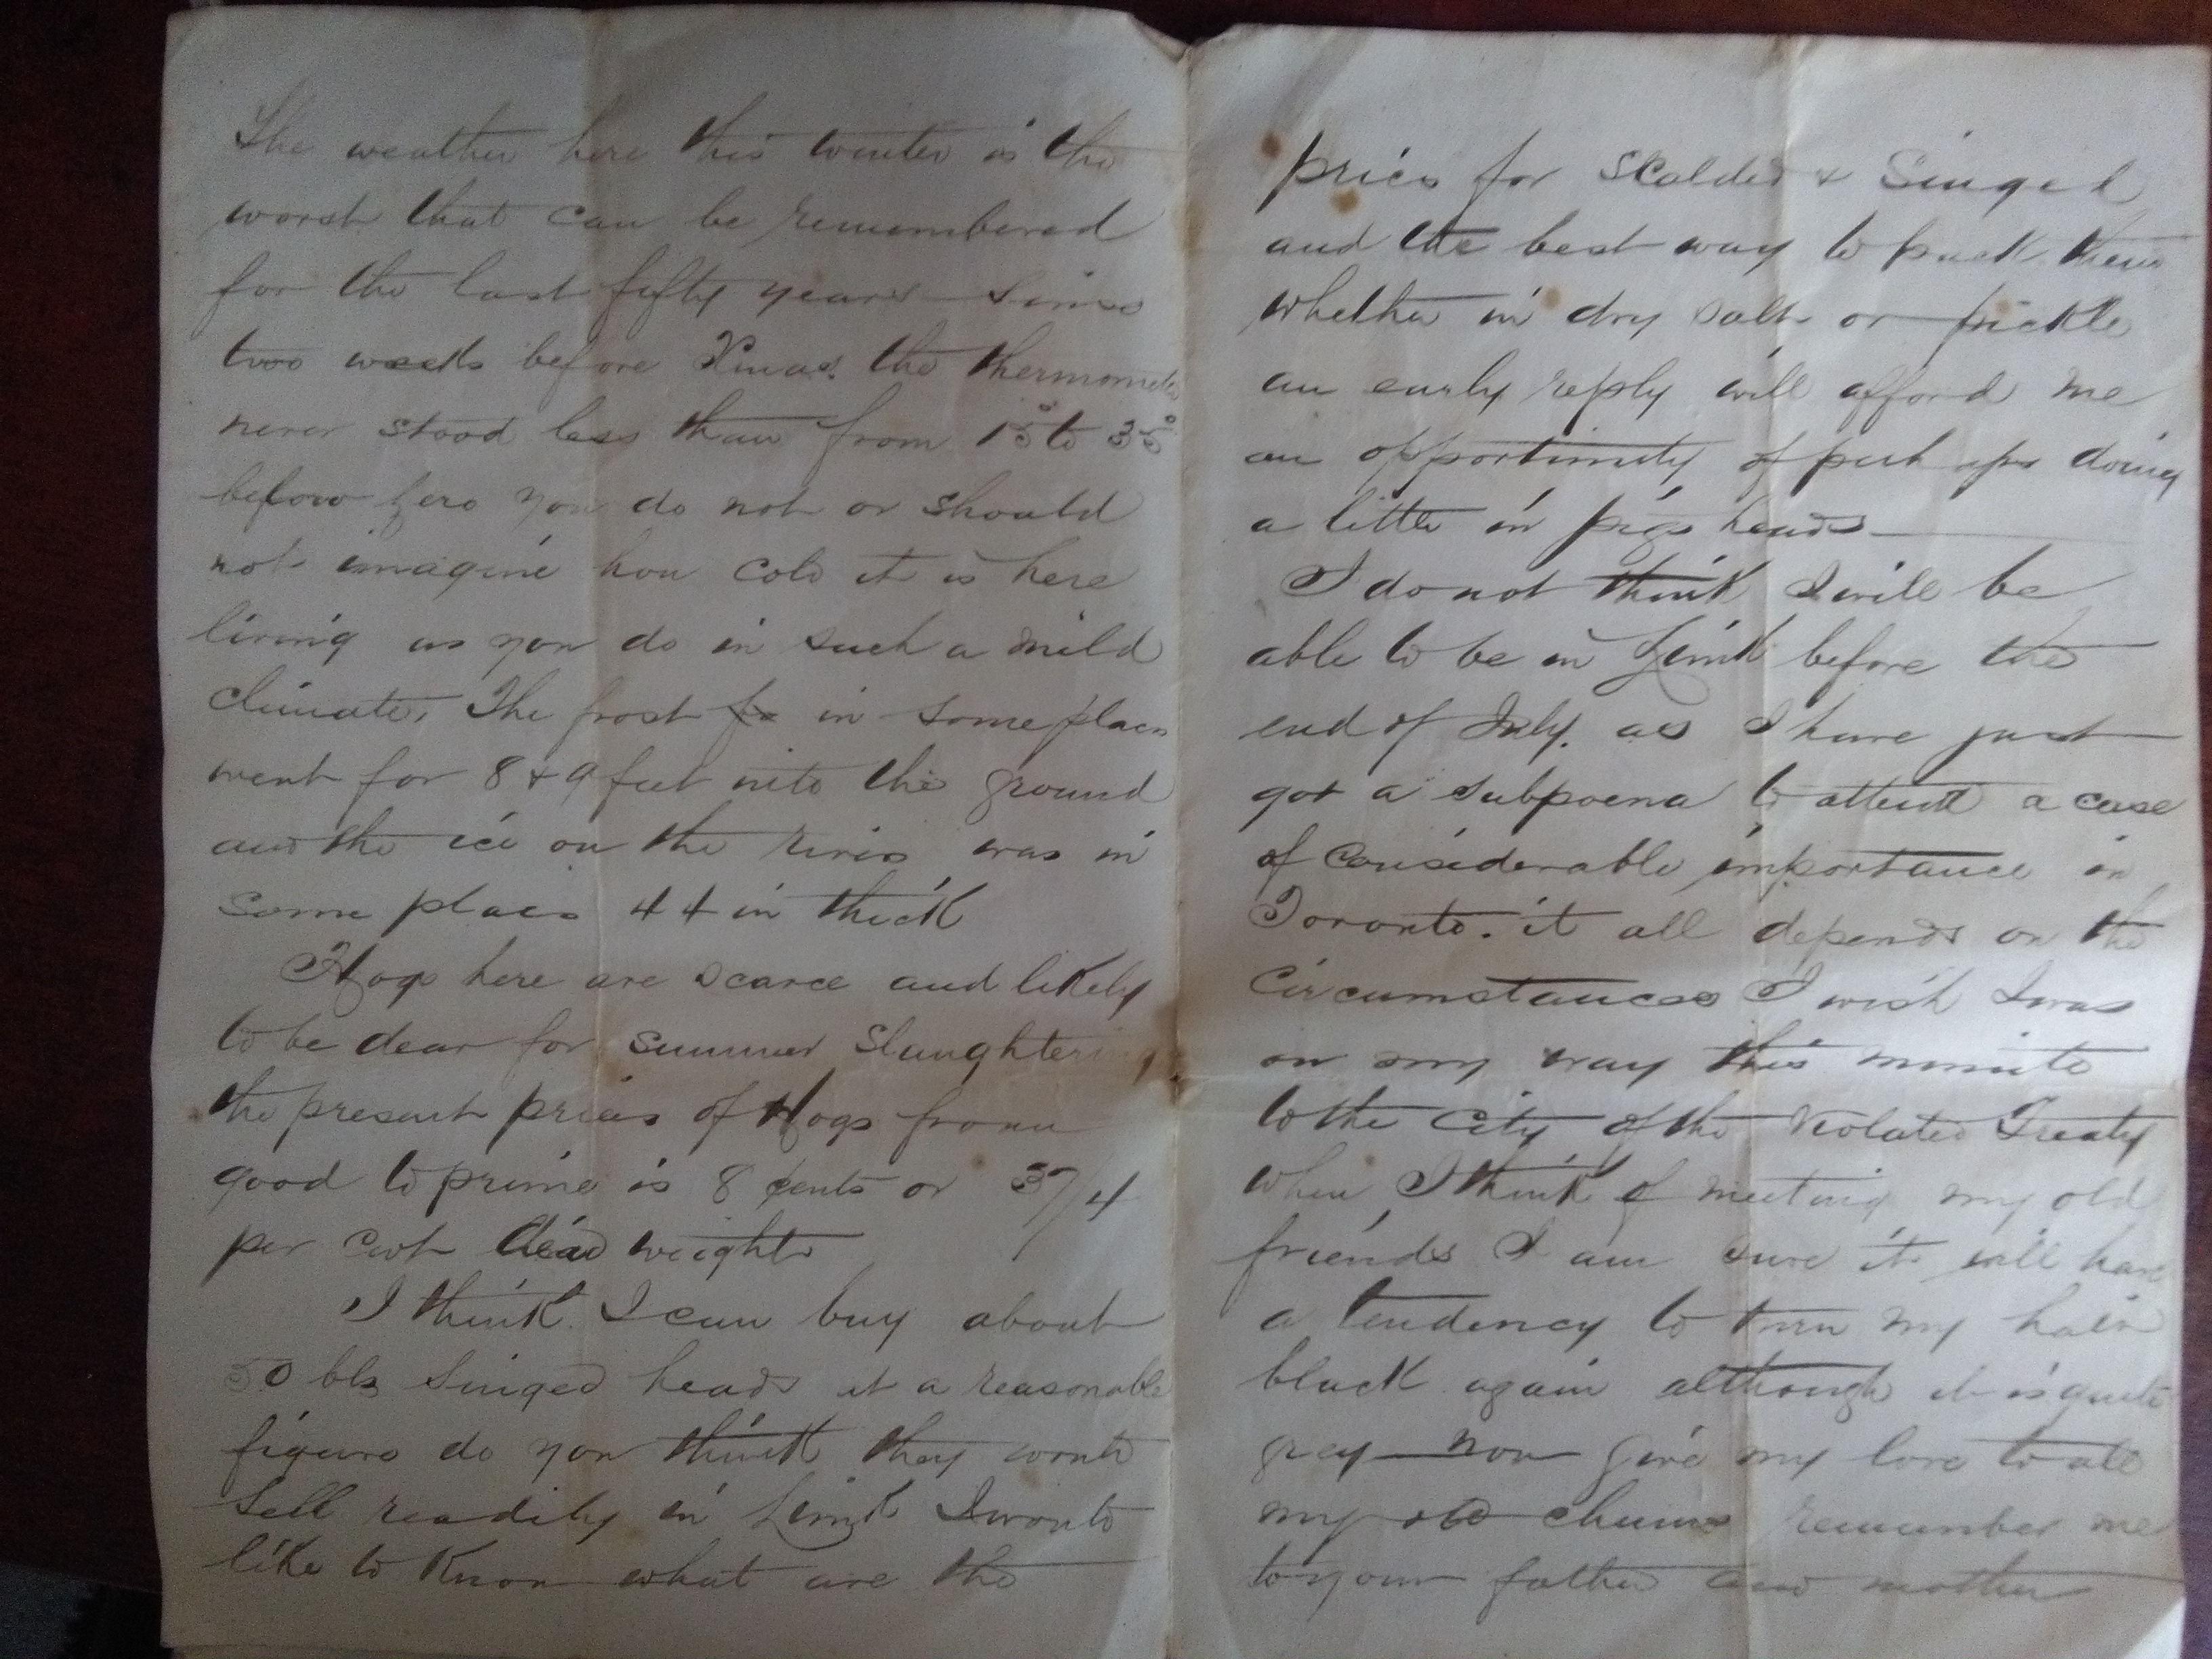 The weather here this winter is the
worst that can be remembered
for the last fifty years since
two weeks before Xmas. the thermometer
never stood less than from 15° to 35°
below zero you do not or should
not imagine how cold it is here
living as you do in such a mild
climate, The frost in some places
went for 8 & 9 feet into the ground
and the ice on the rivers was in
some places 44 in thick
Hogs here are scarce and likely
to be dear for summer slaughtering
the present prices of Hogs from
good to prime is 8 cents or 37/4
per cwt dead weight
I think I can buy about
50 bls singed heads at a reasonable
figure do you think they would
sell readily in Limk I would
like to know what are the
prices for scalded & singed
and the best way to pack them
whether in dry salt or pickle
an early reply will afford me
an opportunity of perhaps doing
a little in pigs heads
I do not think I will be
able to be in Limk before the
end of July. as I have just
got a subpoena to attend a case
of considerable importance in
Toronto. it all depends on the
circumstances I wish I was
on my way this minute
to the City of the Violated Treaty
when I think of meeting my old
friends I am sure it will have
a tendency to turn my hair
black again although it is quite
grey now give my love to all
my old chums remember me
to your father and mother